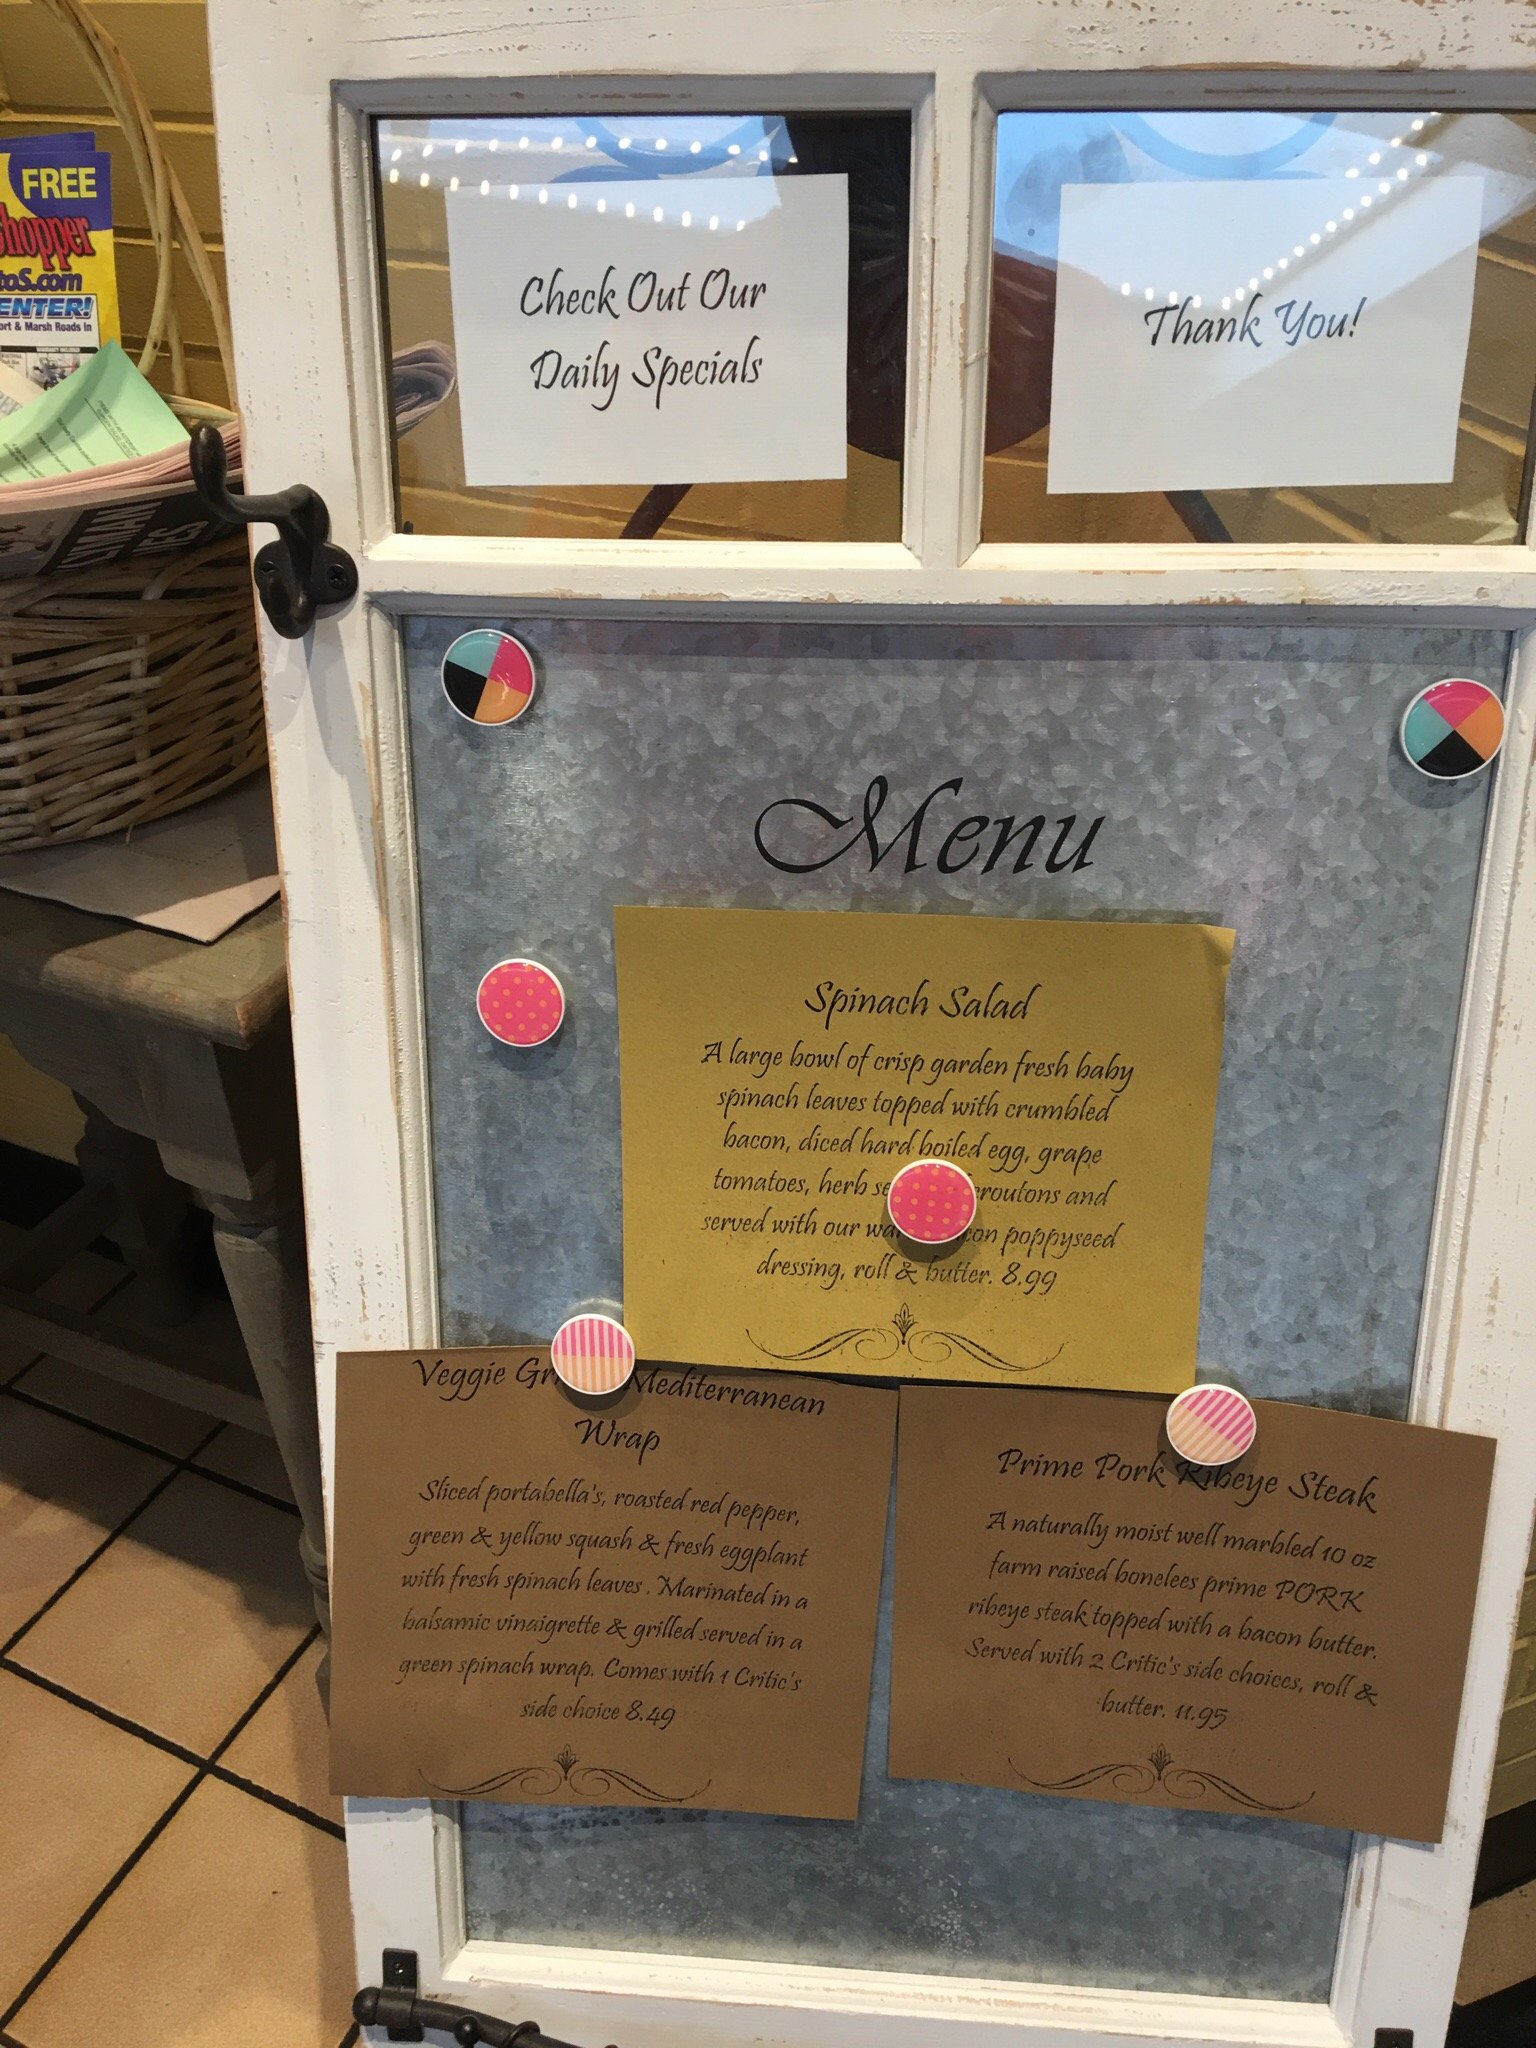 FREE
hopper
toS.com
ENTER!
ort & Marsh Roads In
Check Out Our
Daily Specials
Thank You!
Menu
Spinach Salad
A large bowl of crisp garden fresh baby
spinach leaves topped with crumbled
bacon, diced hard boiled egg, grape
tomatoes, herb se croutons and
served with our wa con poppyseed
dressing, roll & butter. 8.99
Veggie Gri Mediterranean
Wrap
Sliced portabella's, roasted red pepper,
green & yellow squash & fresh eggplant
with fresh spinach leaves. Marinated in a
balsamic vinaigrette & grilled served in a
green spinach wrap. Comes with 1 Critic's
side choice 8.49
Prime Pork Ribeye Steak
A naturally moist well marbled 10 oz
farm raised bonelees prime PORK
ribeye steak topped with a bacon butter.
Served with 2 Critic's side choices, roll &
butter. 11.95